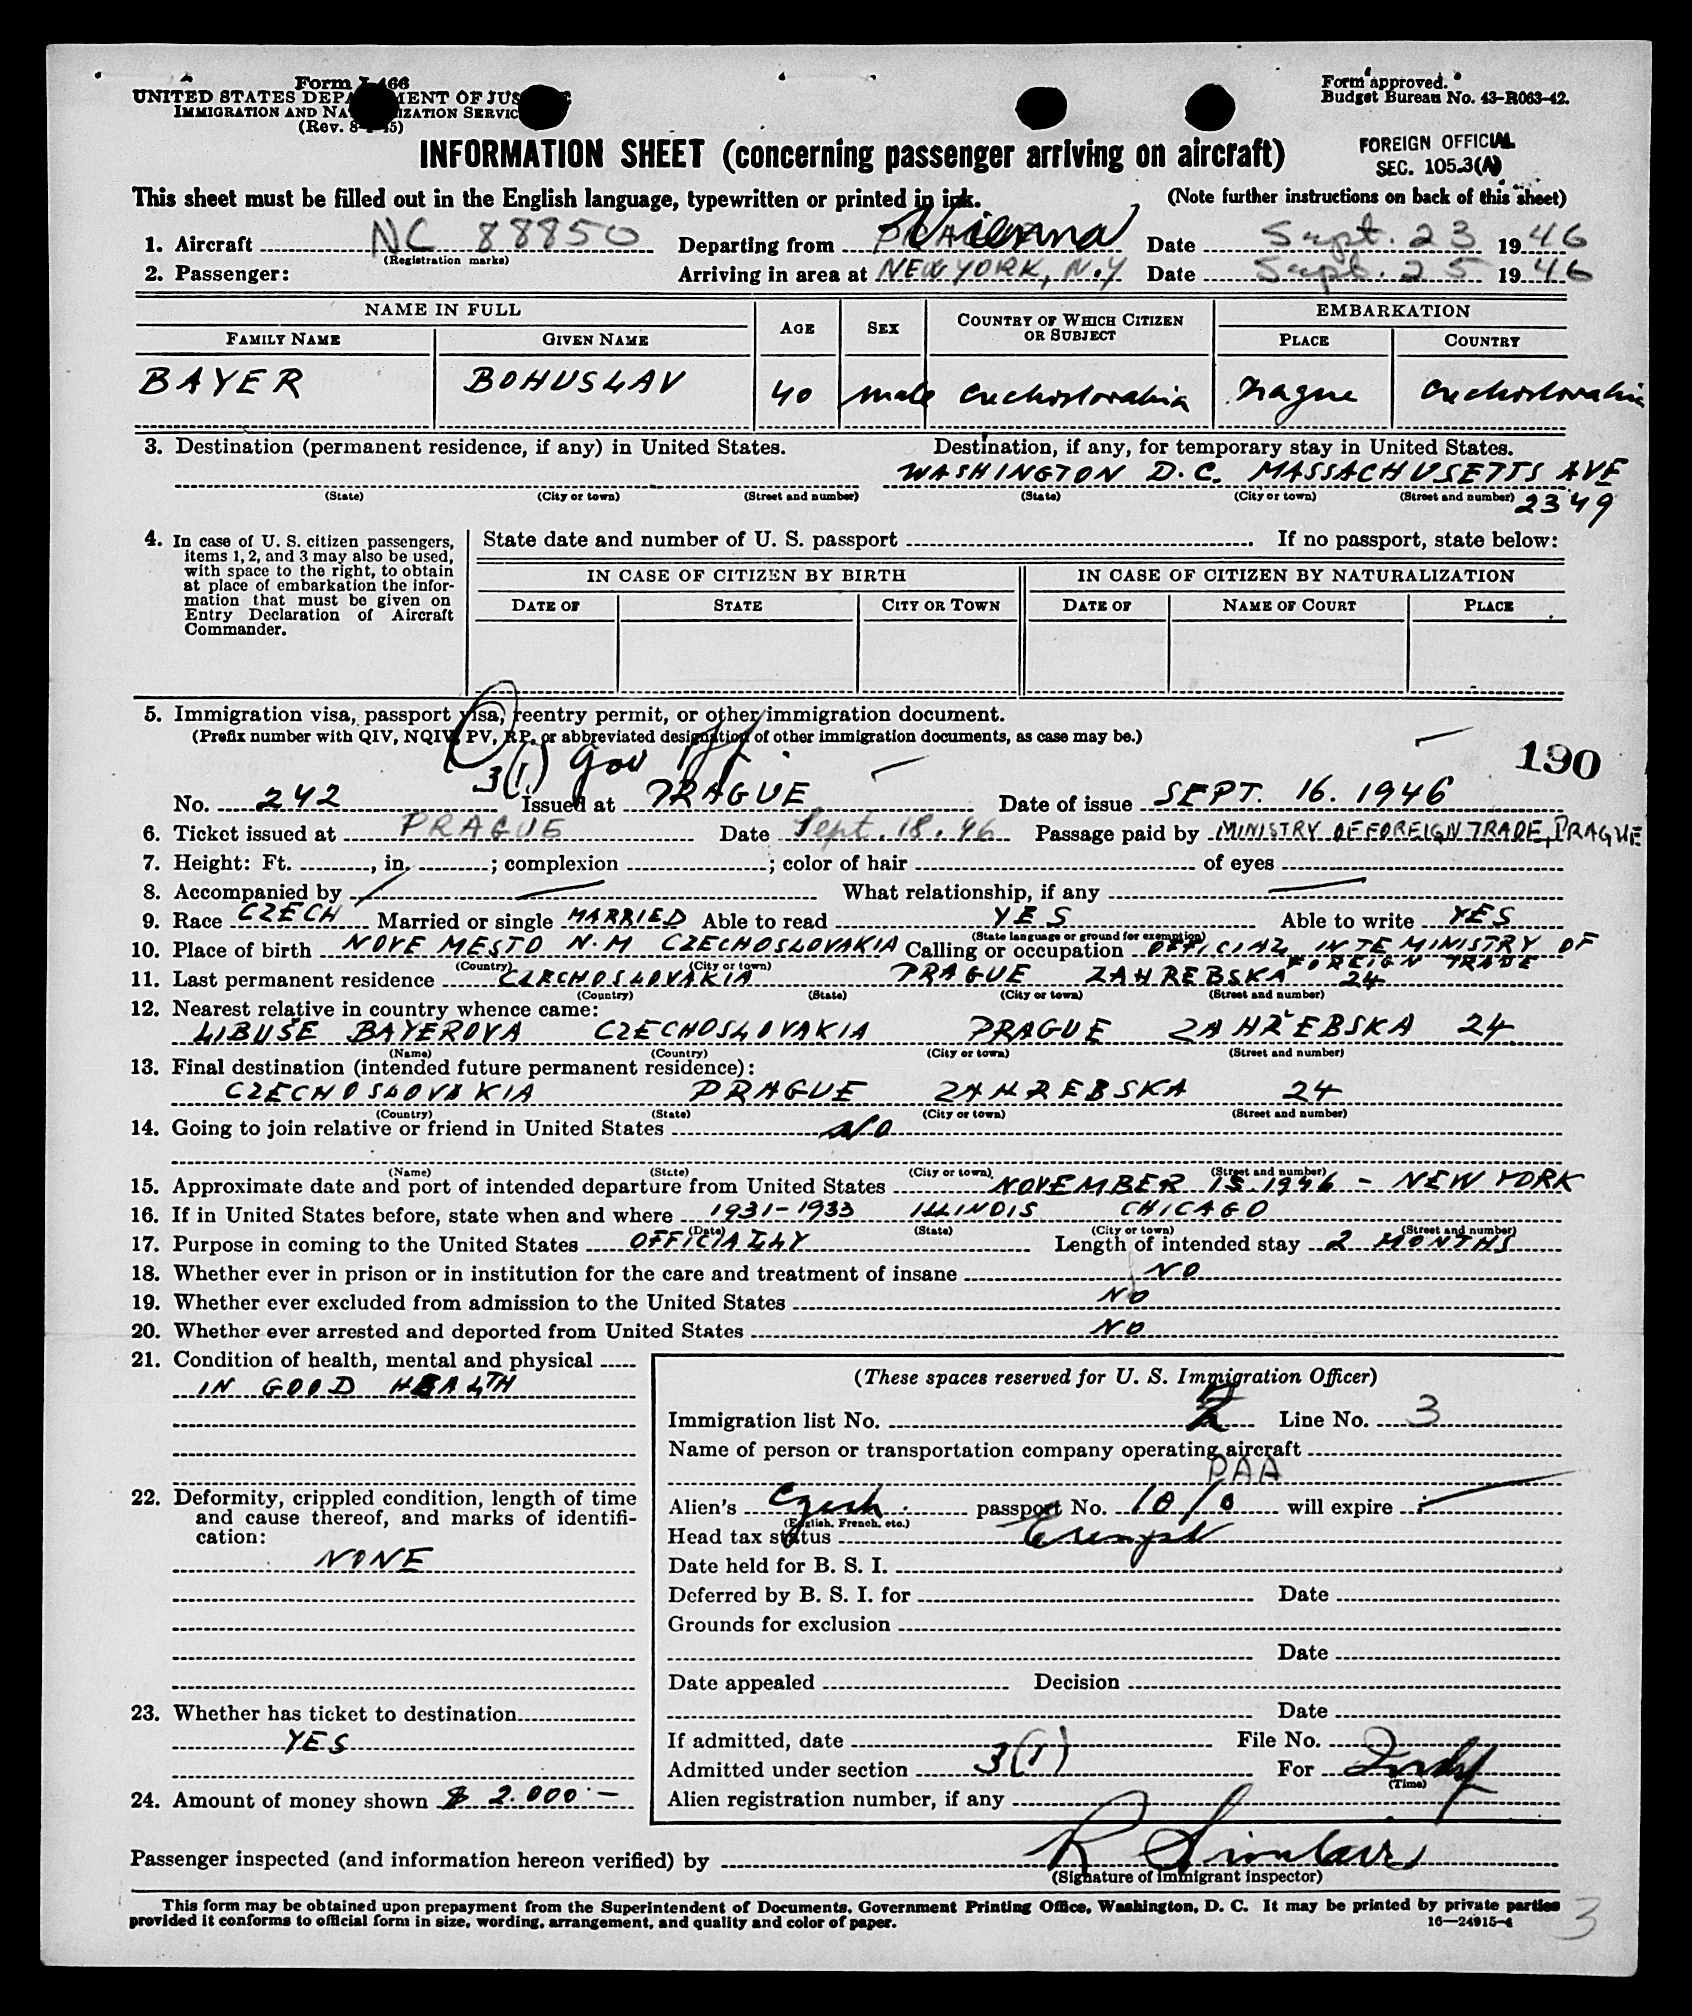 Form I-466
UNITED STATES DEPARTMENT OF JUSTICE
IMMIGRATION AND NATURALIZATION SERVICE
(Rev. 8-1-45)
Form approved.
Budget Bureau No. 43-R063-42.
FOREIGN OFFICIAL
SEC. 105.3(A)
INFORMATION SHEET (concerning passenger arriving on aircraft)
This sheet must be filled out in the English language, typewritten or printed in ink. (Note further instructions on back of this sheet)
1. Aircraft NC 88850 Departing from Vienna Date Sept. 23 1946
(Registration marks)
2. Passenger: Arriving in area at NEW YORK, N.Y Date Sept. 25 1946
NAME IN FULL AGE SEX COUNTRY OF WHICH CITIZEN OR SUBJECT EMBARKATION
FAMILY NAME GIVEN NAME PLACE COUNTRY
BAYER BOHUSLAV 40 male Czechoslovakia Prague Czechoslovakia
3. Destination (permanent residence, if any) in United States. Destination, if any, for temporary stay in United States.
WASHINGTON D.C. MASSACHUSETTS AVE
(State) (City or town) (Street and number) (State) (City or town) (Street and number) 2349
4. In case of U. S. citizen passengers, items 1, 2, and 3 may also be used, with space to the right, to obtain at place of embarkation the information that must be given on Entry Declaration of Aircraft Commander.
State date and number of U. S. passport If no passport, state below:
IN CASE OF CITIZEN BY BIRTH IN CASE OF CITIZEN BY NATURALIZATION
DATE OF STATE CITY OR TOWN DATE OF NAME OF COURT PLACE
5. Immigration visa, passport visa, reentry permit, or other immigration document.
(Prefix number with QIV, NQIV, PV, RP, or abbreviated designation of other immigration documents, as case may be.)
3(1) Gov Off. 190
No. 242 Issued at PRAGUE Date of issue SEPT. 16. 1946
6. Ticket issued at PRAGUE Date Sept. 18. 46 Passage paid by MINISTRY OF FOREIGN TRADE, PRAGUE
7. Height: Ft. , in. ; complexion ; color of hair of eyes
8. Accompanied by — What relationship, if any —
9. Race CZECH Married or single MARRIED Able to read YES Able to write YES
(State language or ground for exemption)
10. Place of birth NOVE MESTO N.M CZECHOSLOVAKIA Calling or occupation OFFICIAL IN TE MINISTRY OF
FOREIGN TRADE
(Country) (City or town)
11. Last permanent residence CZECHOSLOVAKIA PRAGUE ZAHREBSKA 24
(Country) (State) (City or town) (Street and number)
12. Nearest relative in country whence came:
LIBUSE BAYEROVA CZECHOSLOVAKIA PRAGUE ZAHŘEBSKA 24
(Name) (Country) (City or town) (Street and number)
13. Final destination (intended future permanent residence):
CZECHOSLOVAKIA PRAGUE ZAHREBSKA 24
(Country) (State) (City or town) (Street and number)
14. Going to join relative or friend in United States NO
(Name) (State) (City or town) (Street and number)
15. Approximate date and port of intended departure from United States NOVEMBER 15.1946 - NEW YORK
16. If in United States before, state when and where 1931-1933 ILLINOIS CHICAGO
(Date) (State) (City or town) (Street and number)
17. Purpose in coming to the United States OFFICIALLY Length of intended stay 2 MONTHS
18. Whether ever in prison or in institution for the care and treatment of insane NO
19. Whether ever excluded from admission to the United States NO
20. Whether ever arrested and deported from United States NO
21. Condition of health, mental and physical
IN GOOD HEALTH
22. Deformity, crippled condition, length of time
and cause thereof, and marks of identifi-
cation:
NONE
23. Whether has ticket to destination
YES
24. Amount of money shown $ 2.000.—
(These spaces reserved for U. S. Immigration Officer)
Immigration list No. 2 Line No. 3
Name of person or transportation company operating aircraft
PAA
Alien's Czech. passport No. 10/0 will expire
(English, French, etc.)
Head tax status Exempt
Date held for B. S. I.
Deferred by B. S. I. for Date
Grounds for exclusion
Date
Date appealed Decision
Date
If admitted, date File No.
Admitted under section 3(1) For Indef
(Time)
Alien registration number, if any
Passenger inspected (and information hereon verified) by R Sinclair
(Signature of immigrant inspector)
This form may be obtained upon prepayment from the Superintendent of Documents, Government Printing Office, Washington, D. C. It may be printed by private parties
provided it conforms to official form in size, wording, arrangement, and quality and color of paper. 16—24915-4
3